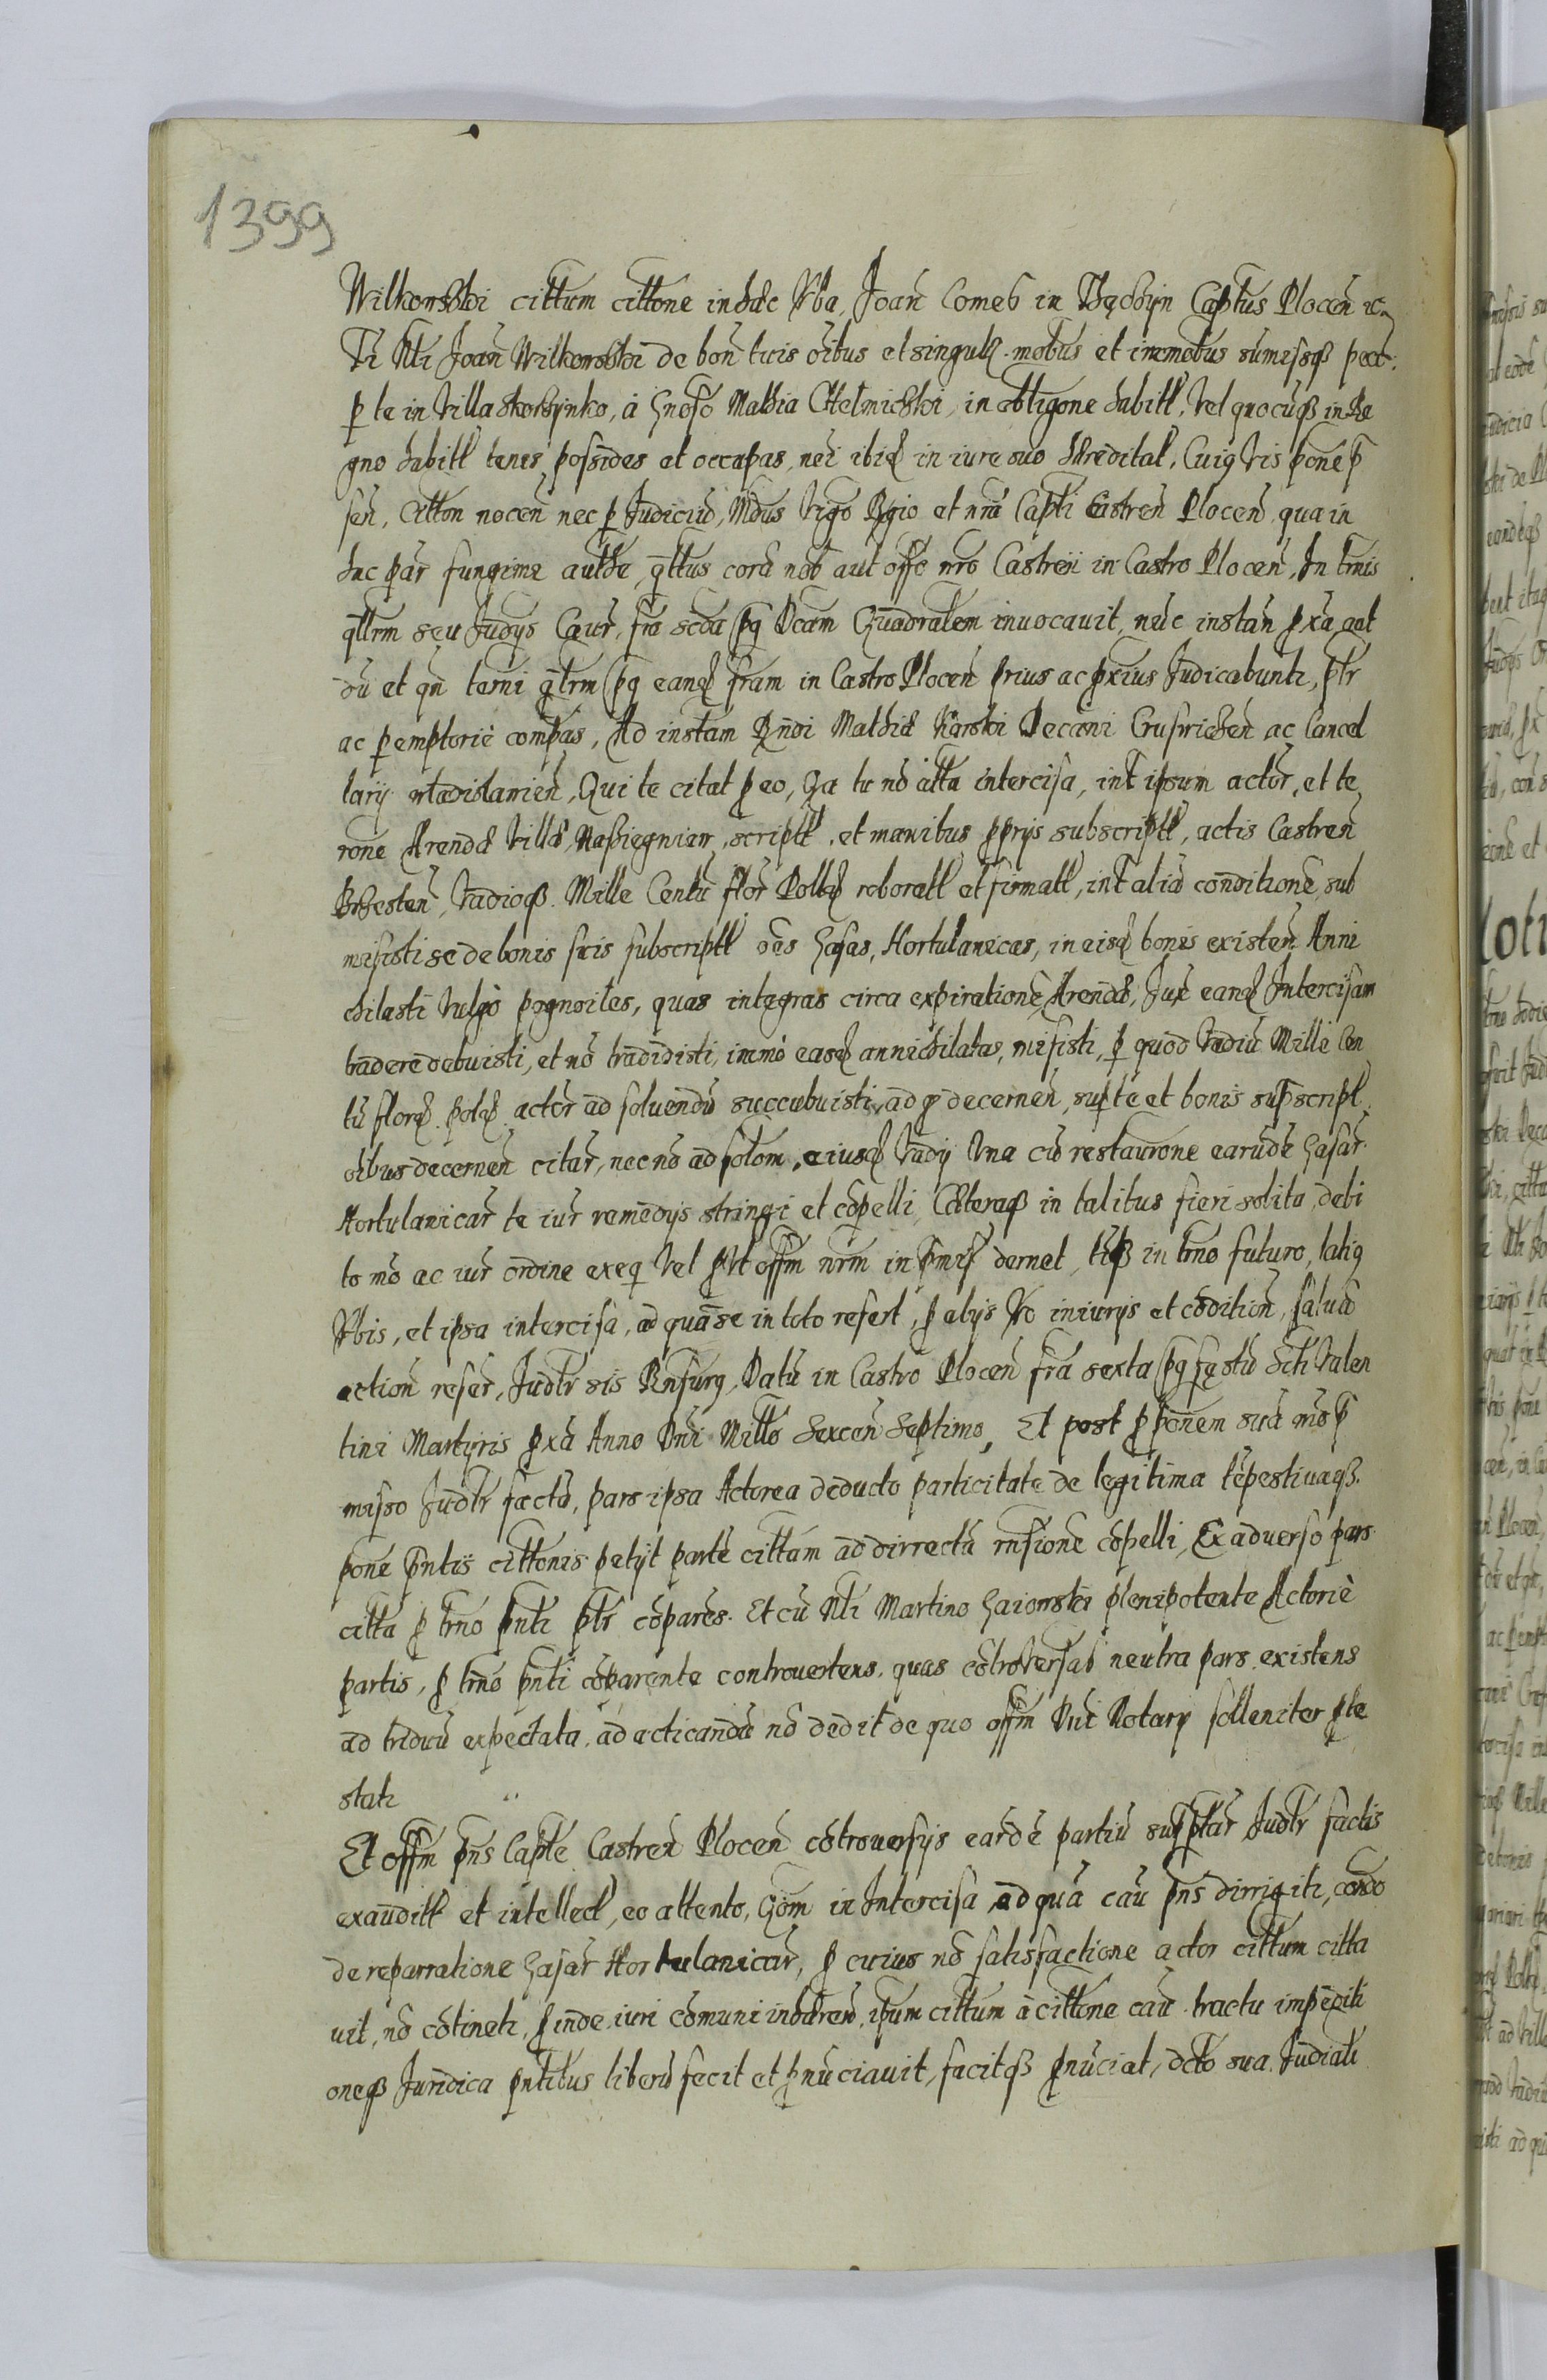 1399
Wilkowskoi cittum cittone in hæc Vba, Joañ Comes in Thęchÿn Captus Plocen̄ ꝛc
Ti Nti Joan̄ Wilkowskoi de bon̄ tuis oībus et singulꝫ mobus et immobus sumissqꝫ pecc:
ꝑ te in Villa skorzÿnko, à Gnoso Mathia Chelmichki, in obligone habitt, Vel quocūqꝫ in Re
gno habitt tenes possides et occupas, nec ibiꝗ in iure suo hæreditat, Cuiꝗ Vis pone p
sen, Citton nocen̄ nec ꝑ Judiciū, Mdus Vigo Rgio et nrā Capti Castren̄ Plocen̄ qua in
hac par fungimꝛ authe, qttus corā nob aut offo nro Castreñ in Castro Plocen̄, In tmis
qttrm seu Judÿs Cæur, fra scda pꝗ Dcam Quadralem invocavit, nūc instan pxa aat
dū et qn̄ terni qtrm pꝗ eanꝗ fram in Castro Plocen̄ prius ac pxius Judicabuntꝛ, ptr
ac ꝑemptoriè compas, Ad instam Rndi Mathiæ Karskoi Decani Crusvichen̄ ac Cancel
larÿ wladislavien̄, Qui te citat ꝑ eo, Qa tu nō atta intercisa, int ipsum actor, et te
rone Arendæ Villæ Nasiegniew, scriptt, et manibus ꝓprÿs subscriptt, actis Castren̄
Brzesten̄, Vadioqꝫ. Mille Centū flor Pollꝗ roboratt et firmatt, int aliā conditione, sub
misisti se de bonis suis subscriptt oēs Casas, Hortulanicas, in eisꝗ bonis existen̄ Anni
chilasti Vulgò pognoiles, quas integras circa expirationē Arendæ, Jux eanꝗ Intercisam
tradere debuisti, et nō tradidisti, immò easꝗ annichilatas, misisti, ꝑ quod Vadiū Mille Cen
tū florꝗ. polꝗ. actor ad soluendū succubuisti, ad ꝙ decernen̄, sup te et bonis supscript.
oībus decernen̄ citar, nec nō ad solom, eiusꝗ Vadÿ Vna cū restaurone earūdē Casar
Hortulanicar te iur remedÿs stringi et cōpelli, Cæteraqꝫ in talibus fieri solita, debi
to mō ac iur ordine exeq Vel put offm nrm in pmis dernet, tūqꝫ in tmo futuro, latiꝗ
Vbis, et ipsa intercisa, ad quā se in toto refert, ꝑ alÿs Vo iniurÿs et cōdition, salua
action reser, Judtr sis Rnsurꝗ, Datū in Castro Plocen̄ fra sexta pꝗ fęstū Scti Valen
tini Martÿris pxa Anno Dni Millo Sexcen Septimo, Et post ꝓponem suā mō p
misso Judtr factā, pars ipsa Actorea deducto particitate de legitima tēpestivaqꝫ.
pone pntis cittonis petÿt parte cittam ad dirrectā rnsione cōpelli, Ex adverso pars
citta ꝑ tmo pnti ptr cōpares. Et cū Nti Martino Gaiowski plenipotente Actoriè
partis, ꝑ tmo pnti cōparente controuertens, quas cōtroversas neutra pars existens
ad triduū expectata, ad acticandū nō dedit de quo offm Dni Notarÿ solleniter ꝓte
statꝛ
Et offm pns Capte Castren̄ Plocen̄ cōtroversÿs earūdē partiū supptar Judtr factis
exauditt et intellect, eo attento, Qōm in Intercisa, ad quā cau pns dirrigitꝛ, condo
de reparratione Casar Hortulanicar, ꝑ cuius nō satisfactione actor cittum citta
uit, nō cōtinetꝛ, ꝑinde iuri cōmuni inhæren, ipum cittum à cittone cau tractu impediti
oneqꝫ Juridica pntibus liberū fecit et ꝓnūciavit, facitqꝫ ꝓnūciat, dcto sua Judiati